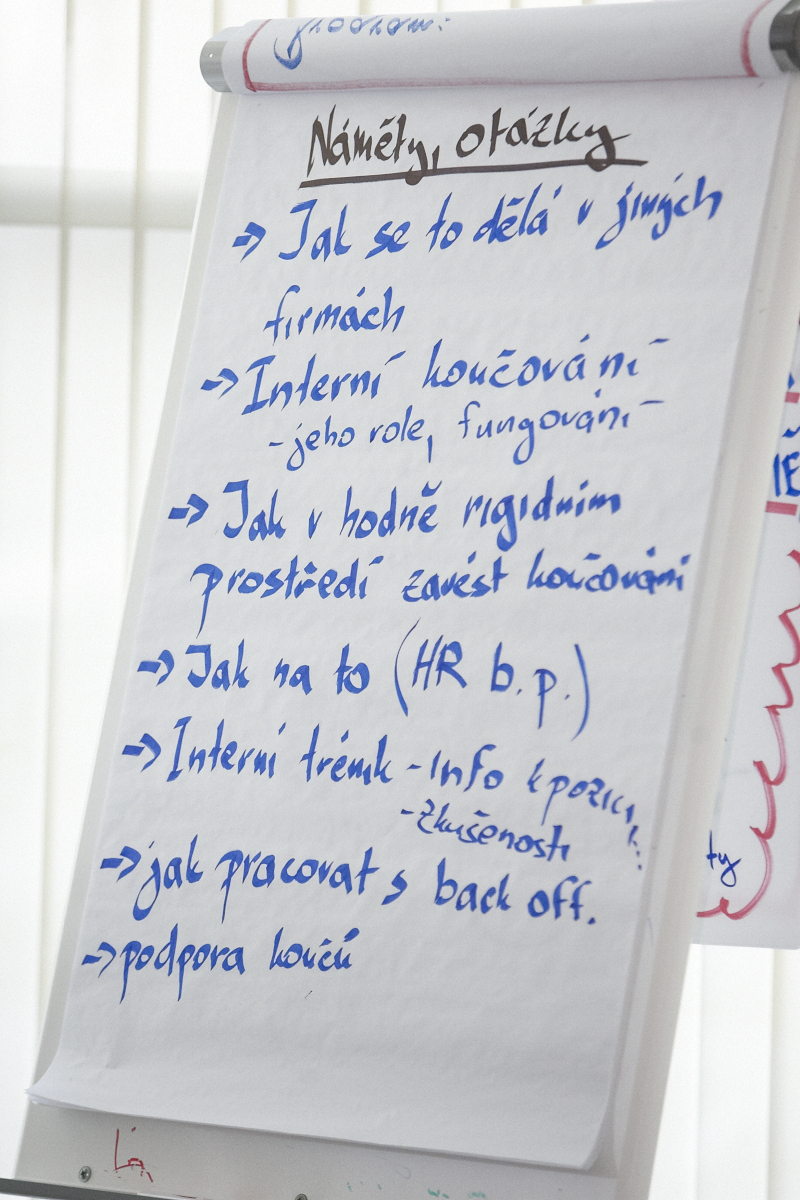 Program:
Náměty, otázky
→ Jak se to dělá v jiných
firmách
→ Interní koučování
- jeho role, fungování
→ Jak v hodně rigidním
prostředí zavést koučování
→ Jak na to (HR b.p.)
→ Interní trénik - Info k pozici, ...
- Zkušenosti
→ jak pracovat s back off.
→ podpora koučů
ty